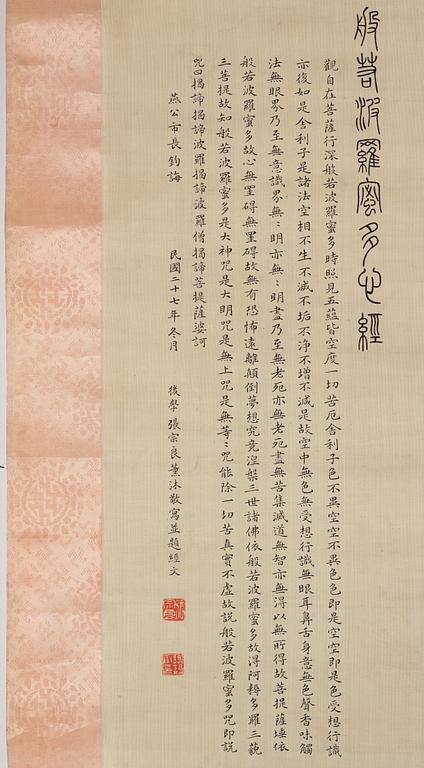 般若波羅蜜多心經
觀自在菩薩行深般若波羅蜜多時照見五蘊皆空度一切苦厄舍利子色不異空空不異色色即是空空即是色受想行識
亦復如是舍利子是諸法空相不生不滅不垢不净不增不滅是故空中無色無受想行識無眼耳鼻舌身意無色聲香味觸
法無眼界乃至無意識界無〻明亦無〻明盡乃至無老死亦無老死盡無苦集滅道無智亦無得以無所得故菩提薩埵依
般若波羅蜜多故心無罣碍無罣碍故無有恐怖遠離顛倒夢想究竟涅槃三世諸佛依般若波羅蜜多故得阿耨多羅三藐
三菩提故知般若波羅蜜多是大神咒是大明咒是無上咒是無等〻咒能除一切苦真實不虛故説般若波羅蜜多咒即説
咒曰揭諦揭諦波羅揭諦波羅僧揭諦菩提薩婆訶
燕公市長鈞誨
民國二十七年冬月
後學張宗良薰沐敬寫並題經文